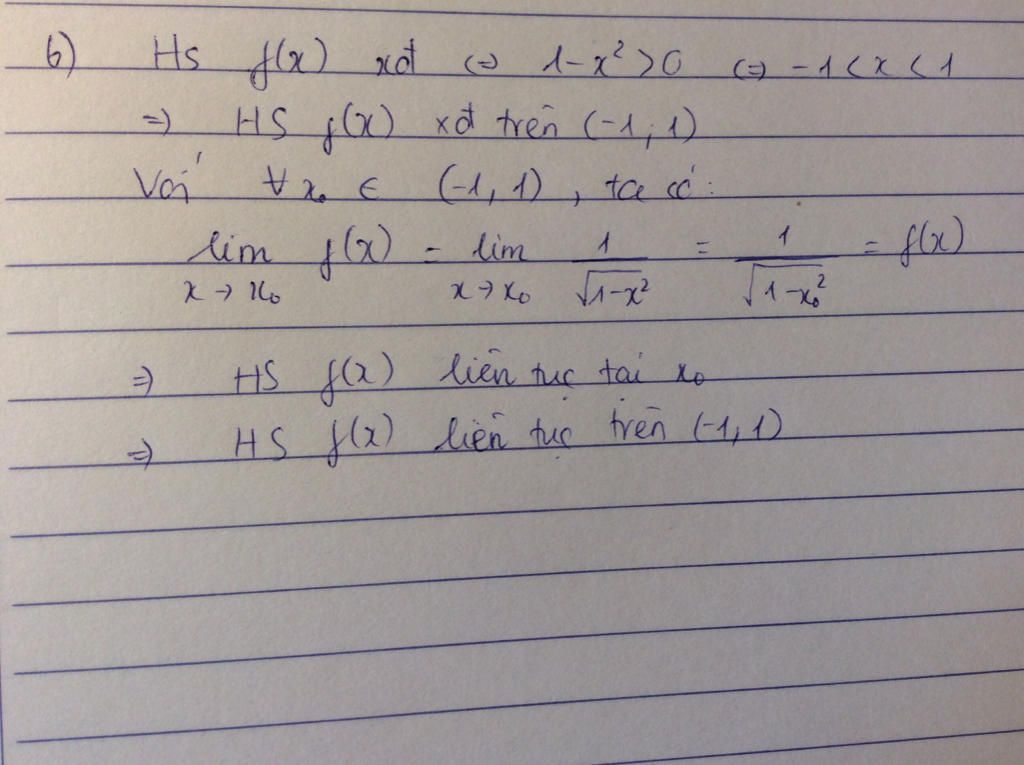 b) Hs f(x) xđ ⇔ 1-x² > 0 ⇔ -1 < x < 1
⇒ HS f(x) xđ trên (-1; 1)
Với ∀x₀ ∈ (-1, 1), ta có:
lim x→x₀ f(x) = lim x→x₀ 1/√(1-x²) = 1/√(1-x₀²) = f(x)
⇒ HS f(x) liên tục tại x₀
⇒ HS f(x) liên tục trên (-1, 1)